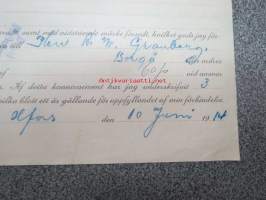 samt med nedanstående märke försedt, hvilket gods jag för-
till Herr K. W. Granberg,
Borgå eller ordres
af Kafo vid namn
Af detta konnossement har jag underskrifvit 3
hvilka blott ett är gällande för uppfyllandet af min förbindelse.
Hfors den 10 Juni 1914
Antikvariaatti.net